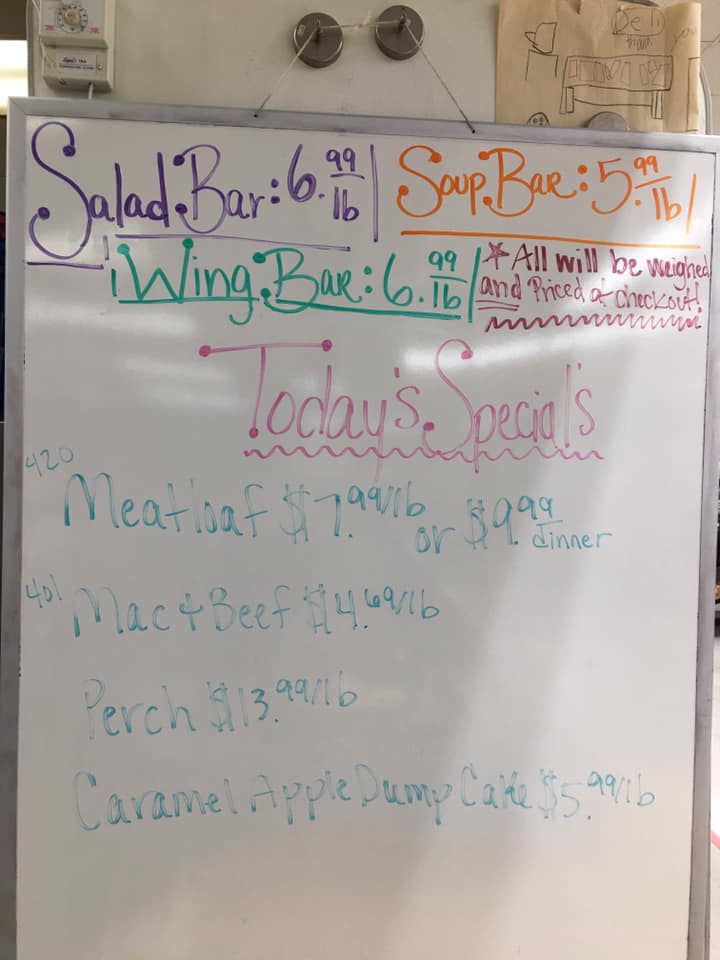 Deli
Salad Bar: 6.99/lb
Soup Bar: 5.99/lb
Wing Bar: 6.99/lb
* All will be weighed
and Priced at checkout!
Today's Special's
420
Meatloaf $7.99/lb or $9.99 dinner
401
Mac + Beef $4.69/lb
Perch $13.99/lb
Caramel Apple Dump Cake $5.99/lb